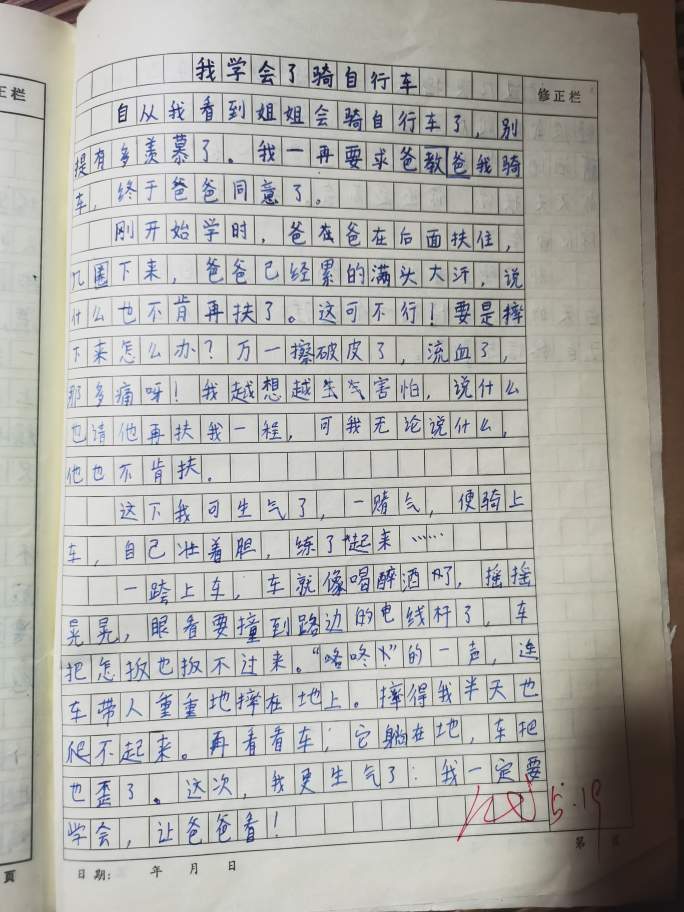 我学会了骑自行车
正栏
修正栏
自从我看到姐姐会骑自行车了，别
提有多羡慕了。我一再要求爸教爸我骑
车，终于爸爸同意了。
刚开始学时，爸在爸在后面扶住，
几圈下来，爸爸已经累的满头大汗，说
什么也不肯再扶了。这可不行！要是摔
下来怎么办？万一擦破皮了，流血了，
那多痛呀！我越想越生气害怕，说什么
也请他再扶我一程，可我无论说什么，
他也不肯扶。
这下我可生气了，一赌气，便骑上
车，自己壮着胆，练了起来……
一跨上车，车就像喝醉酒了，摇摇
晃晃，眼看要撞到路边的电线杆了，车
把怎扳也扳不过来。“咯咚”的一声，连
车带人重重地摔在地上。摔得我半天也
爬不起来。再看看车；它躺在地，车把
也歪了。这次，我更生气了：我一定要
学会，让爸爸看！
5.19
页
日期： 年 月 日
第 页